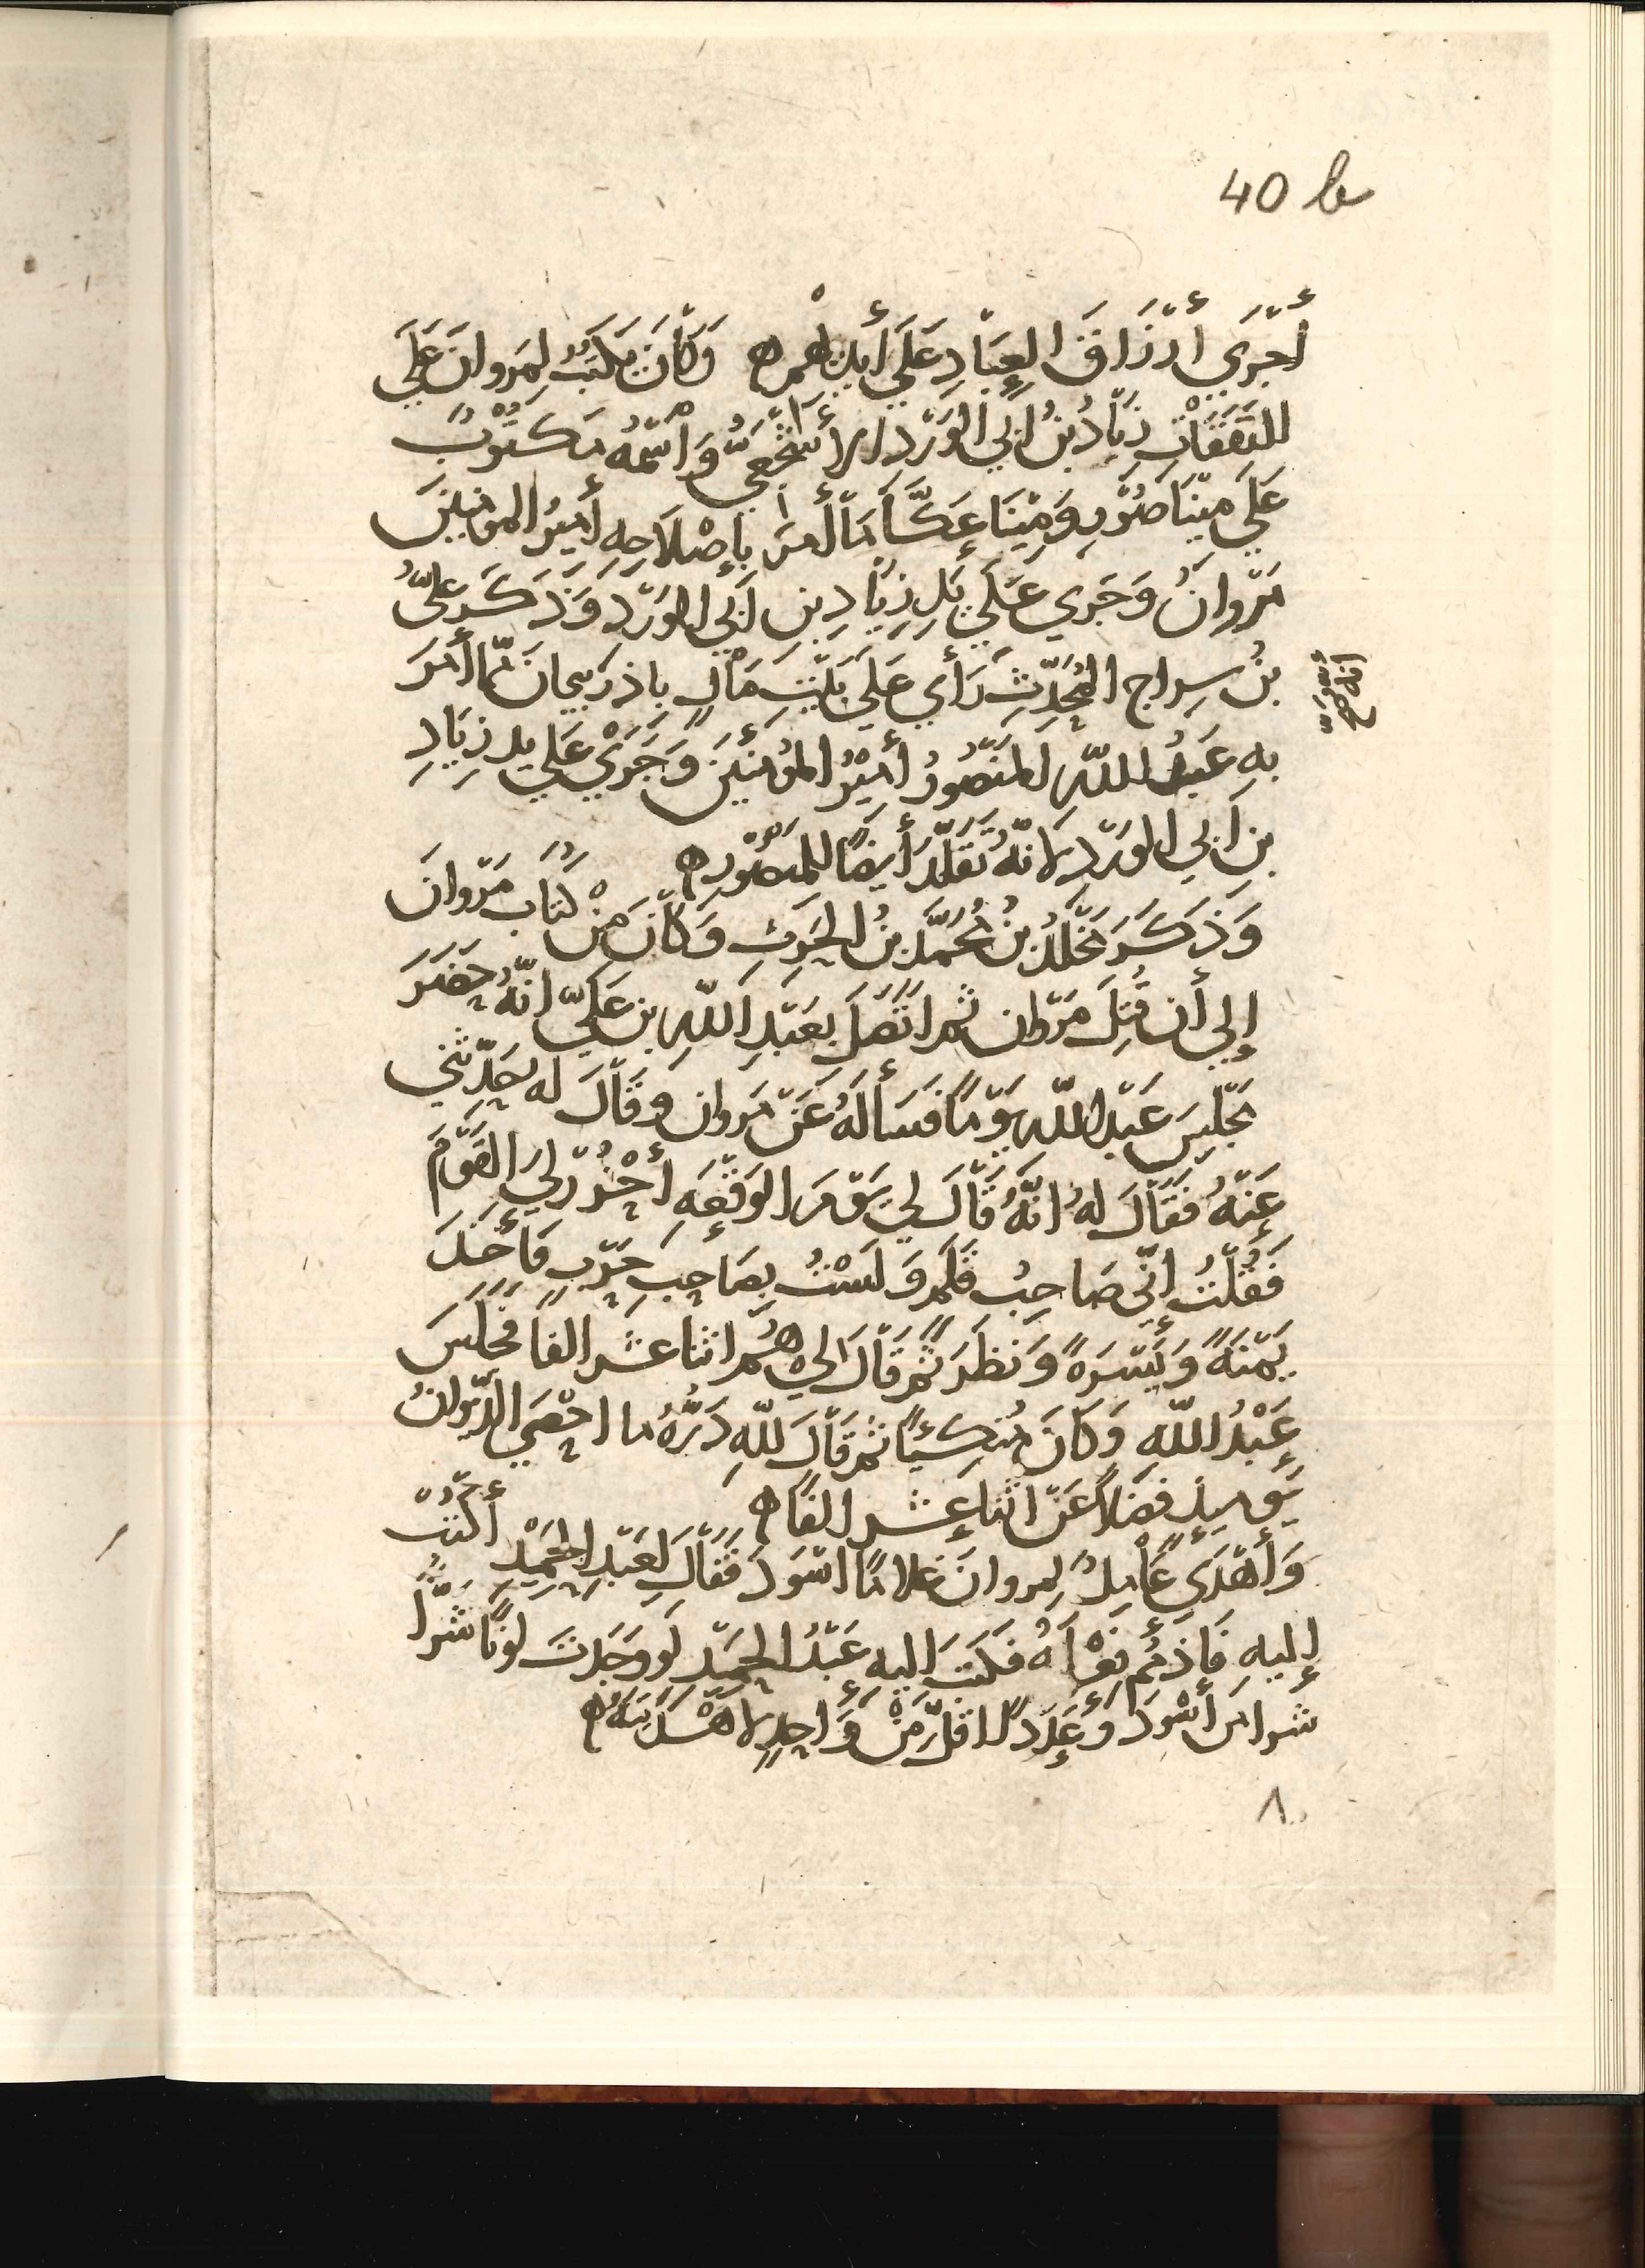 40 b
أَجْرَى أَرْزَاقَ العِبَادِ عَلَى أَيْدِيهم ه وَكَانَ يَكْتُبُ لِمَروانَ عَلَى
النَّفَقَاتِ زِيَادُ بنُ أبي الوَرْدِ الأَشْجَعِيُّ وَاسْمُهُ مَكتُوْبٌ
عَلَى مِيْنَا صُوْرٍ وَمِيْنَا عَكَّا مَا أَمرَ بِإِصْلَاحِهِ أَمِيرُ المومِنِينَ
مَرْوانُ وَجَرى عَلَى يَدِ زِيَادِ بنِ أبي الوَرْدِ وَذَكَرَ عَلىُّ
بنُ سِراج المُحَدِّثِ رَأى عَلَى بَيْتِ مَالٍ باذربيجان مّمَا أَمَرَ
أنه صح
بهِ عَبْدُ اللّهِ المَنْصُورُ أَمِيْرُ المُؤمنيْنَ وَجَرَىْ عَلى يدِ زِيَادِ
بنِ أبي الوَرْدِ لانّهُ تَقَلَّدَ أيضًا للمنصُوْرِ ه
وَذَكَرَ مَخْلَدُ بنُ مُحَمَّد بنُ الحَرثِ وَكَانَ مِنْ كُتّابِ مَرْوانَ
إلى أن قُتِلَ مَرْوان ثم اتّصَلَ بعَبْدِ اللّهِ بن عَليّ انّهُ حَضَرَ
مَجْلِسَ عَبْدِ اللّهِ يَوْمًا فَسَألَهُ عَنْ مَروان وقَالَ له حَدِّثنى
عَنْهُ فقَالَ لهُ انَّهُ قَالَ لي يَوْمَ الوَقْعَهِ أُحْزُرْ لِيَ القَوْمَ
فَقُلْتُ إنّى صَاحِبُ قَلَمٍ وَلَسْتُ بِصَاحِبِ حَرْبٍ فَأَخَذَ
يَمْنَةً وَيَسْرَهً وَنظَرَ ثُمَّ قَالَ لى هُمْ اثنا عشر الفًا فجَلَسَ
عَبْدُ اللّهِ وَكَانَ مُتكِئًا ثم قَالَ للّهِ دَرُّهُ ما احْصَى الدّيوانُ
يَومِيذٍ فضلاً عَنْ اثنا عشر الفًا ه
وَأَهْدَى عَامِلٌ لِمروانَ غلامًا اسْوَدَ فقَالَ لِعَبْدِ الحَمِيْدِ أكتُبْ
إليهِ فَاذمُمْ فِعْلَهُ فكَتَبَ إليهِ عَبْدُ الحَمِيْد لو وَجَدتَ لَوْنًا شَرًّا
شرا من أسْوَدَ وَعَدَدًا اقلّ مِنْ وَاحِدٍ لاهْدَيْتَهُ ه
٨